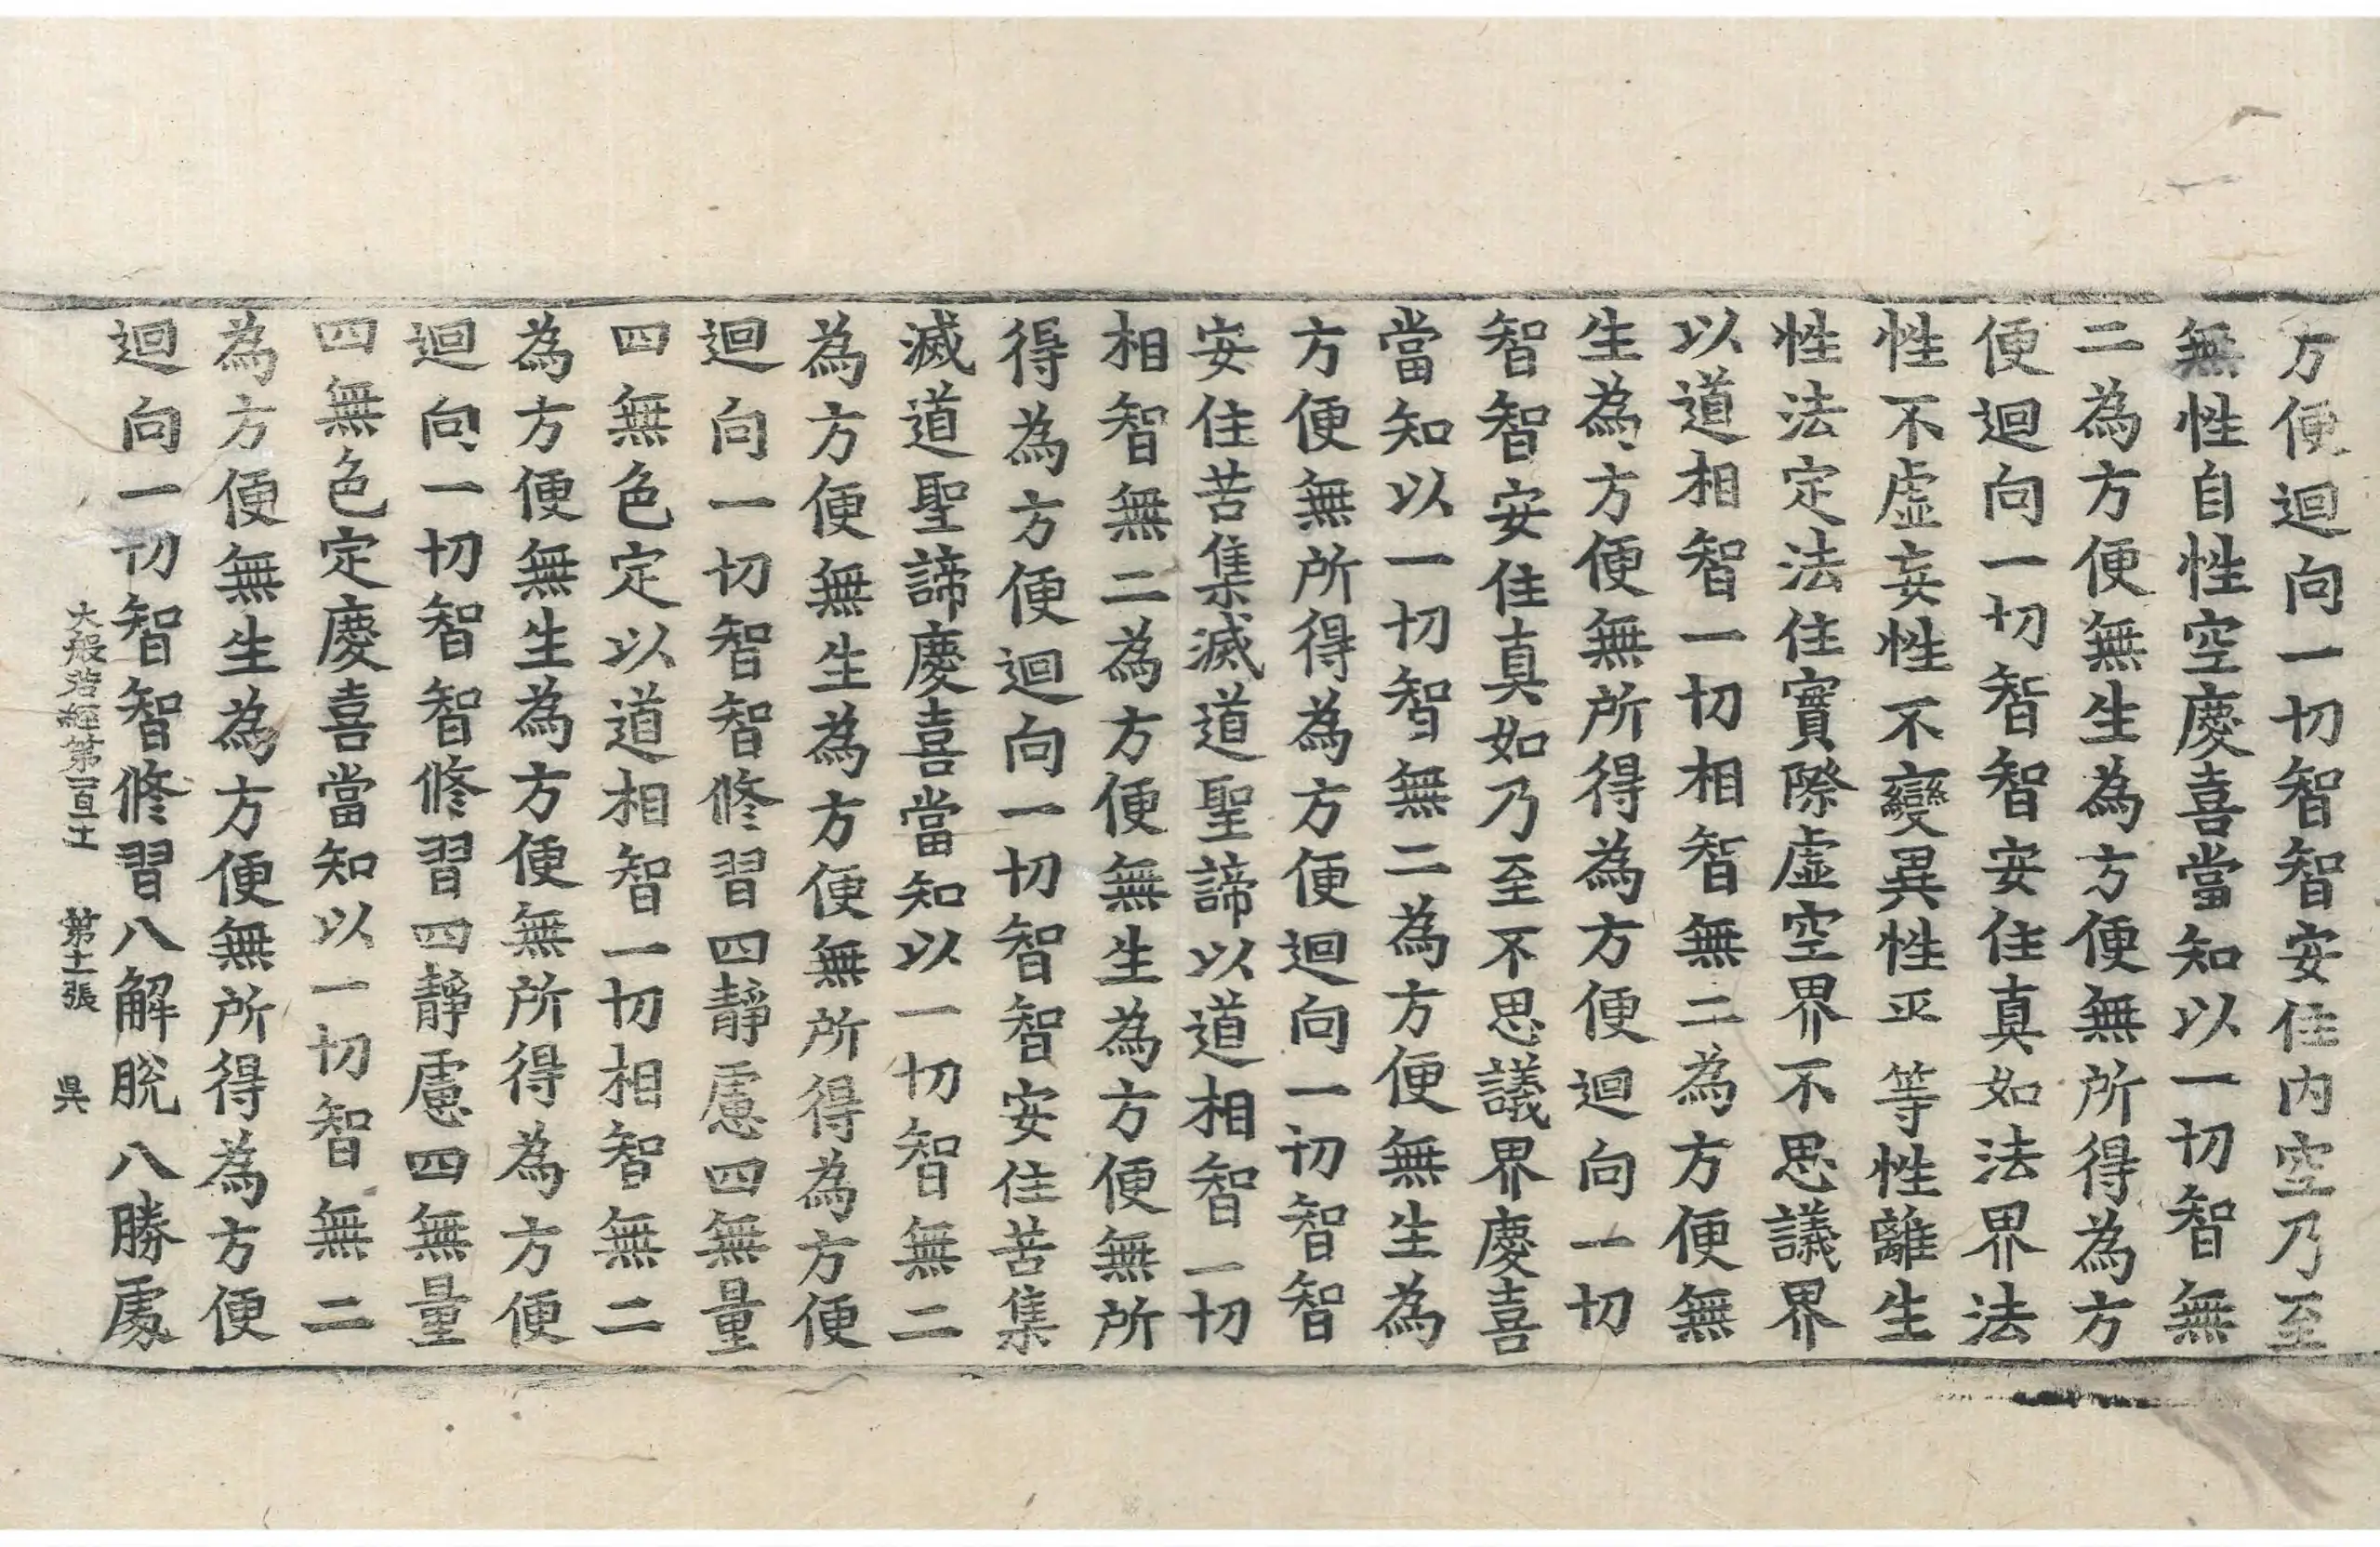 方便迴向一切智智安住内空乃至
無性自性空慶喜當知以一切智無
二為方便無生為方便無所得為方
便迴向一切智智安住真如法界法
性不虛妄性不變異性平等性離生
性法定法住實際虛空界不思議界
以道相智一切相智無二為方便無
生為方便無所得為方便迴向一切
智智安住真如乃至不思議界慶喜
當知以一切智無二為方便無生為
方便無所得為方便迴向一切智智
安住苦集滅道聖諦以道相智一切
相智無二為方便無生為方便無所
得為方便迴向一切智智安住苦集
滅道聖諦慶喜當知以一切智無二
為方便無生為方便無所得為方便
迴向一切智智修習四靜慮四無量
四無色定以道相智一切相智無二
為方便無生為方便無所得為方便
迴向一切智智修習四靜慮四無量
四無色定慶喜當知以一切智無二
為方便無生為方便無所得為方便
迴向一切智智修習八解脫八勝處
大般若經第一百十五 第十二張 吳